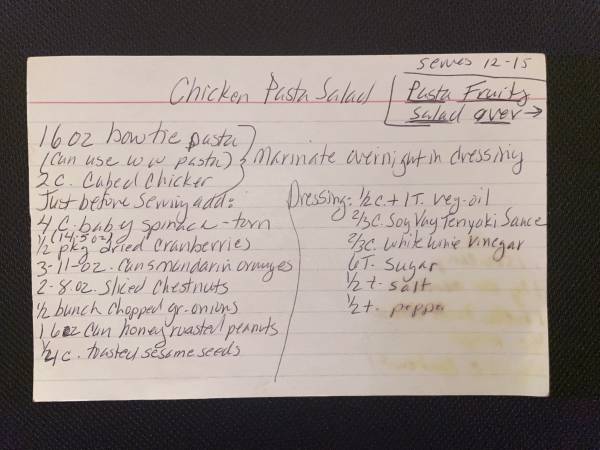 serves 12-15
Chicken Pasta Salad
Pasta Fruity
salad over →
16 oz bowtie pasta
(can use ww pasta)
2 c. Cubed Chicken
} Marinate overnight in dressing
Just before serving add:
4 C. baby spinach - torn
1/2 pkg dried cranberries
3-11-oz. cans mandarin oranges
2-8.oz. Sliced Chestnuts
1/2 bunch chopped gr. onions
1 6oz can honey roasted peanuts
1/4 c. toasted sesame seeds
Dressing: 1/2 c. + 1 T. veg. oil
2/3 c. Soy Vay Teriyaki Sauce
2/3 c. white wine vinegar
6 T. sugar
1/2 t. salt
1/2 t. pepper